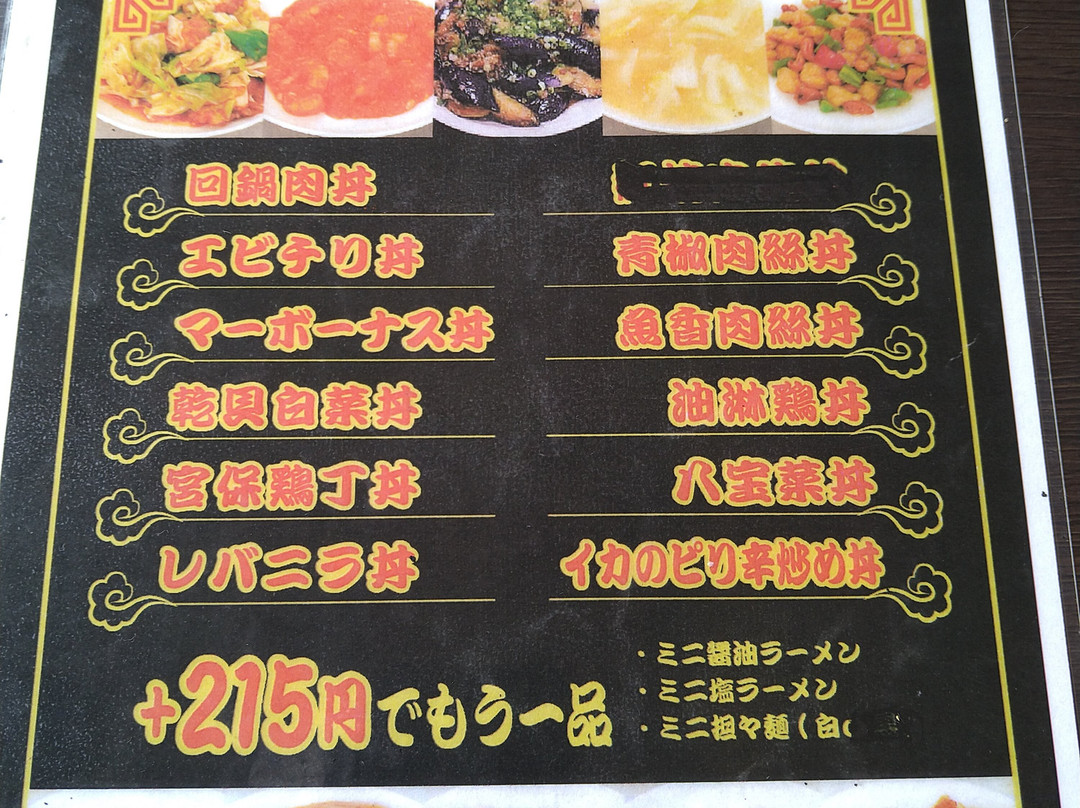 回鍋肉丼
エビチリ丼
マーボーナス丼
乾貝白菜丼
宮保鶏丁丼
レバニラ丼
青椒肉絲丼
魚香肉絲丼
油淋鶏丼
八宝菜丼
イカのピリ辛炒め丼
+215円でもう一品
・ミニ醤油ラーメン
・ミニ塩ラーメン
・ミニ担々麺(白